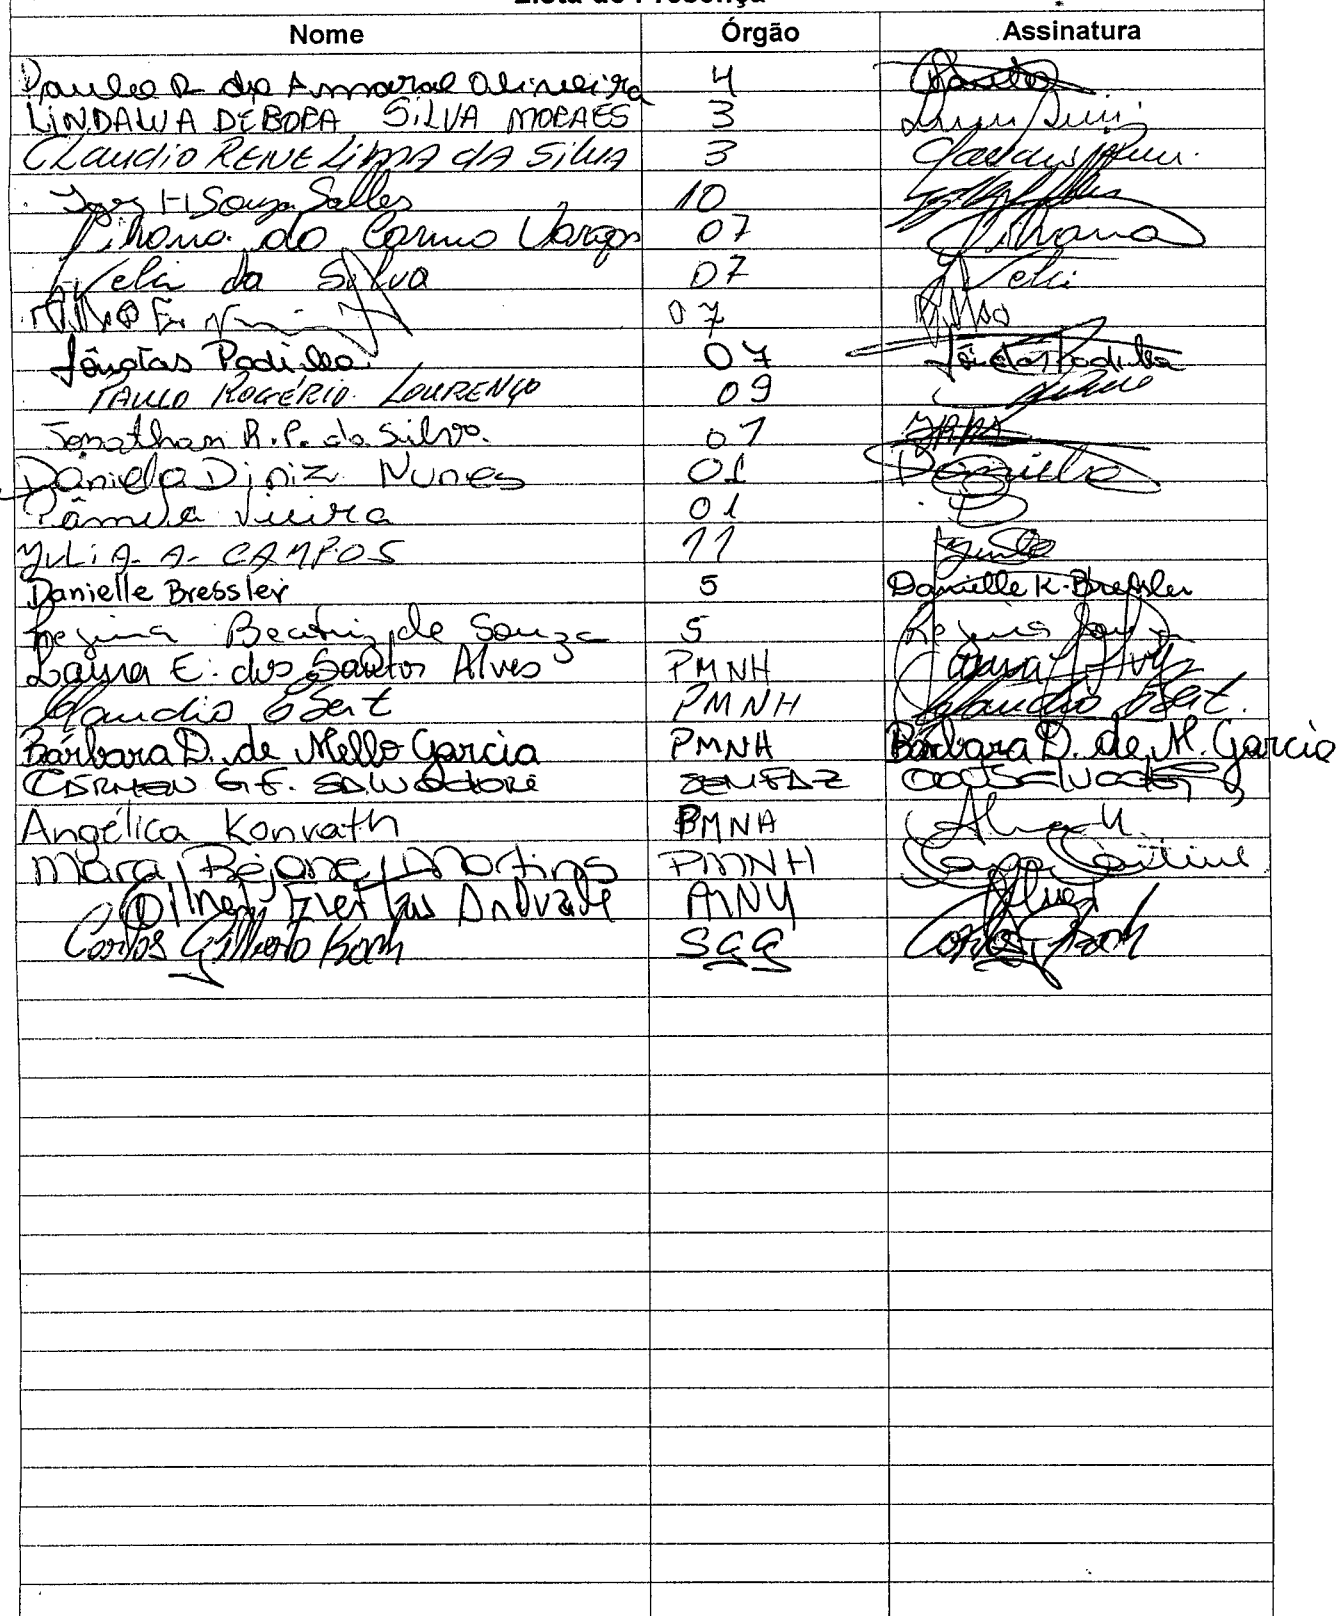 Lista de Presença
Nome Órgão Assinatura
Paulo R do Amaral Oliveira 4 Paulo
LINDALVA DÉBORA SILVA MORAES 3
CLaudio RENE Lima da Silva 3
H Souza Salles 10
do Carmo Vargas 07
Veli da Silva 07 Veli
07
Jônatas Padilha 07 Jônatas Padilha
PAULO ROGÉRIO LOURENÇO 09
Jonathan R.P. da Silva. 01
Daniela Diniz Nunes 01 Daniela
Pâmela Vieira 01
YULI A. A. CAMPOS 11
Danielle Bressler 5 Danielle K. Bressler
Regina Beatriz de Souza 5 Regina Souza
Laura E. dos Santos Alves PMNH Laura Alves
Claudio Ebert PMNH Claudio Ebert.
Bárbara D. de Mello Garcia PMNH Bárbara D. de M. Garcia
CARMEN G.F. SALVADORI SEMFAZ
Angélica Konrath PMNH
Mara Rejane Martins PMNH
Dilnei Freitas Andrade
Carlos Gilberto Koch SGG Carlos Koch